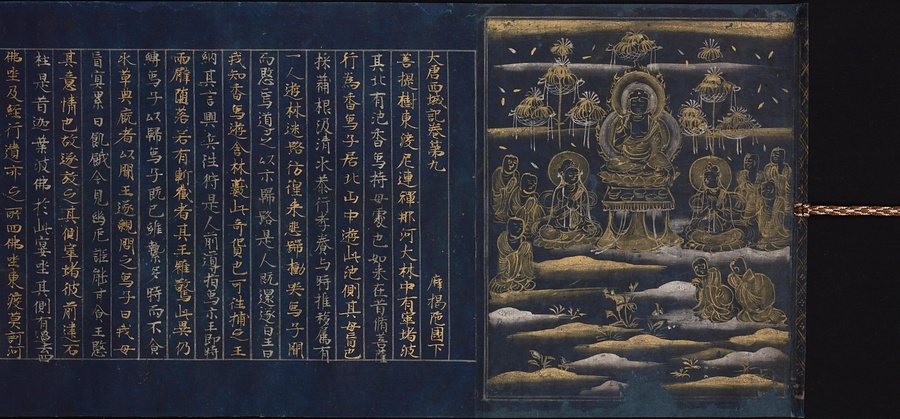 大唐西域記卷第九　摩揭陁國下
菩提樹東渡尼連禪那河大林中有窣堵波
其北有池香象侍母處也如来在昔脩菩薩
行為香象子居北山中遊此池側其母盲也
採藕根汲清水恭行孝養与時推移属有
一人遊林迷路彷徨来悲歸慟哭象子聞
而愍焉導之以示歸路是人既還遂白王曰
我知香象遊舍林藪此奇貨也可往捕之王
納其言興兵往狩是人前導指象示王即時
兩臂墮落若有斬截者其王雖驚此異仍
縛象子以歸象子既已維縶多時而不食
水草典廄者以聞王遂親問之象子曰我母
盲冥累日飢餓今見幽厄詎能甘食王愍
其意情也故遂放之其側窣堵彼前建石
柱是昔迦葉波佛於此宴坐其側有過
佛坐及經行遺迹之所四佛坐東渡莫訶河